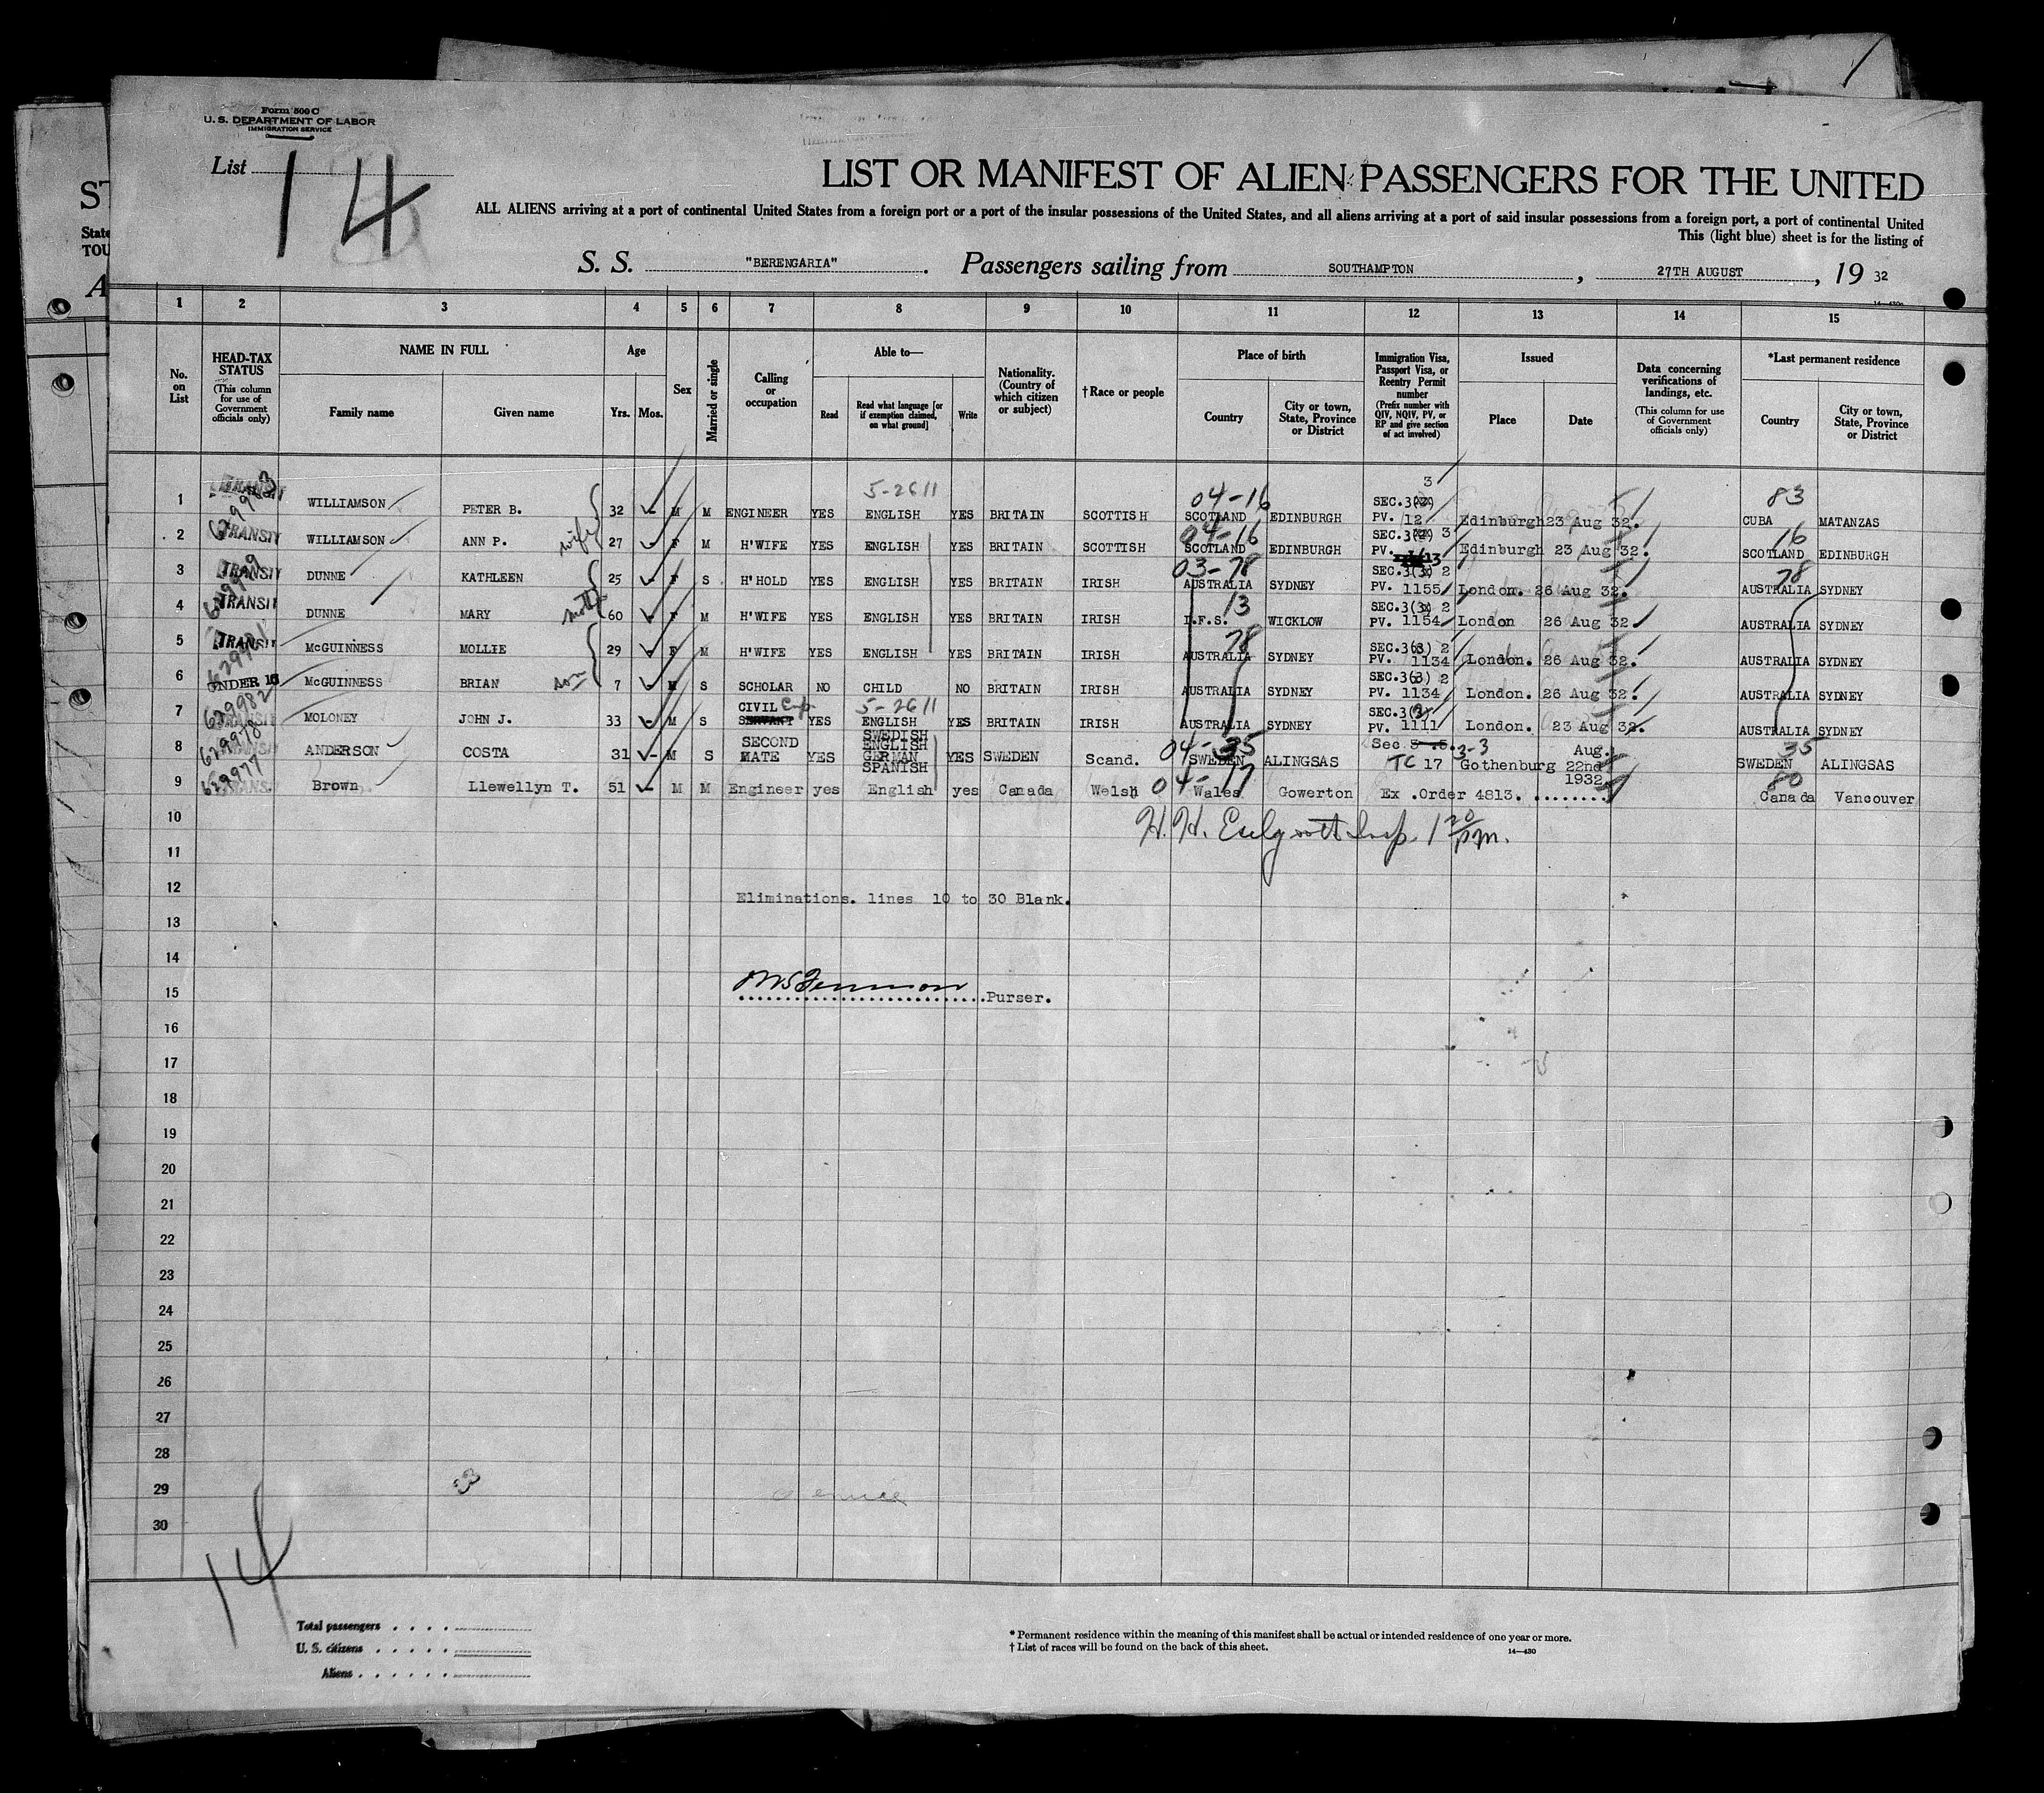 Form 500 C
U. S. DEPARTMENT OF LABOR
IMMIGRATION SERVICE
List 14
LIST OR MANIFEST OF ALIEN PASSENGERS FOR THE UNITED
ALL ALIENS arriving at a port of continental United States from a foreign port or a port of the insular possessions of the United States, and all aliens arriving at a port of said insular possessions from a foreign port, a port of continental United
This (light blue) sheet is for the listing of
S. S. "BERENGARIA". Passengers sailing from SOUTHAMPTON, 27TH AUGUST, 19 32
1 2 3 4 5 6 7 8 9 10 11 12 13 14 15
No. on List
HEAD-TAX STATUS (This column for use of Government officials only)
NAME IN FULL Family name Given name
Age Yrs. Mos.
Sex
Married or single
Calling or occupation
Able to— Read Read what language [or if exemption claimed, on what ground] Write
Nationality. (Country of which citizen or subject)
†Race or people
Place of birth Country City or town, State, Province or District
Immigration Visa, Passport Visa, or Reentry Permit number (Prefix number with QIV, NQIV, PV, or RP and give section of act involved)
Issued Place Date
Data concerning verifications of landings, etc. (This column for use of Government officials only)
*Last permanent residence Country City or town, State, Province or District
5-2611 04-16 3 83
1 TRANSIT WILLIAMSON PETER B. 32 M M ENGINEER YES ENGLISH YES BRITAIN SCOTTISH SCOTLAND EDINBURGH SEC.3 PV. 12 Edinburgh 23 Aug 32. CUBA MATANZAS
04-16 16
2 TRANSIT WILLIAMSON ANN P. wife 27 F M H'WIFE YES ENGLISH YES BRITAIN SCOTTISH SCOTLAND EDINBURGH SEC.3 3 PV. 13 Edinburgh 23 Aug 32. SCOTLAND EDINBURGH
03-78 78
3 TRANSIT DUNNE KATHLEEN 25 F S H'HOLD YES ENGLISH YES BRITAIN IRISH AUSTRALIA SYDNEY SEC.3(3) 2 PV. 1155 London. 26 Aug 32. AUSTRALIA SYDNEY
13
4 TRANSIT DUNNE MARY 60 F M H'WIFE YES ENGLISH YES BRITAIN IRISH I.F.S. WICKLOW SEC.3(3) 2 PV. 1154 London 26 Aug 32 AUSTRALIA SYDNEY
78
5 TRANSIT McGUINNESS MOLLIE 29 F M H'WIFE YES ENGLISH YES BRITAIN IRISH AUSTRALIA SYDNEY SEC.3(3) 2 PV. 1134 London. 26 Aug 32. AUSTRALIA SYDNEY
6 UNDER 16 McGUINNESS BRIAN son 7 M S SCHOLAR NO CHILD NO BRITAIN IRISH AUSTRALIA SYDNEY SEC.3(3) 2 PV. 1134 London. 26 Aug 32. AUSTRALIA SYDNEY
629982 5-2611
7 MOLONEY JOHN J. 33 M S CIVIL SERVANT YES ENGLISH YES BRITAIN IRISH AUSTRALIA SYDNEY SEC.3 PV. 1111 London. 23 Aug 32. AUSTRALIA SYDNEY
629978 04-35 35
8 ANDERSON COSTA 31 M S SECOND MATE YES SWEDISH ENGLISH GERMAN SPANISH YES SWEDEN Scand. SWEDEN ALINGSAS Sec 3-3 TC 17 Gothenburg Aug. 22nd 1932 SWEDEN ALINGSAS
629977 04-17 80
9 Brown Llewellyn T. 51 M M Engineer yes English yes Canada Welsh Wales Gowerton Ex .Order 4813. ........ Canada Vancouver
10
H. H. Insp. 1 20 pm.
11
12
Eliminations. lines 10 to 30 Blank.
13
14
15
.............................Purser.
16
17
18
19
20
21
22
23
24
25
26
27
28
29
30
14
Total passengers
U. S. citizens
Aliens
* Permanent residence within the meaning of this manifest shall be actual or intended residence of one year or more.
† List of races will be found on the back of this sheet.
14—430